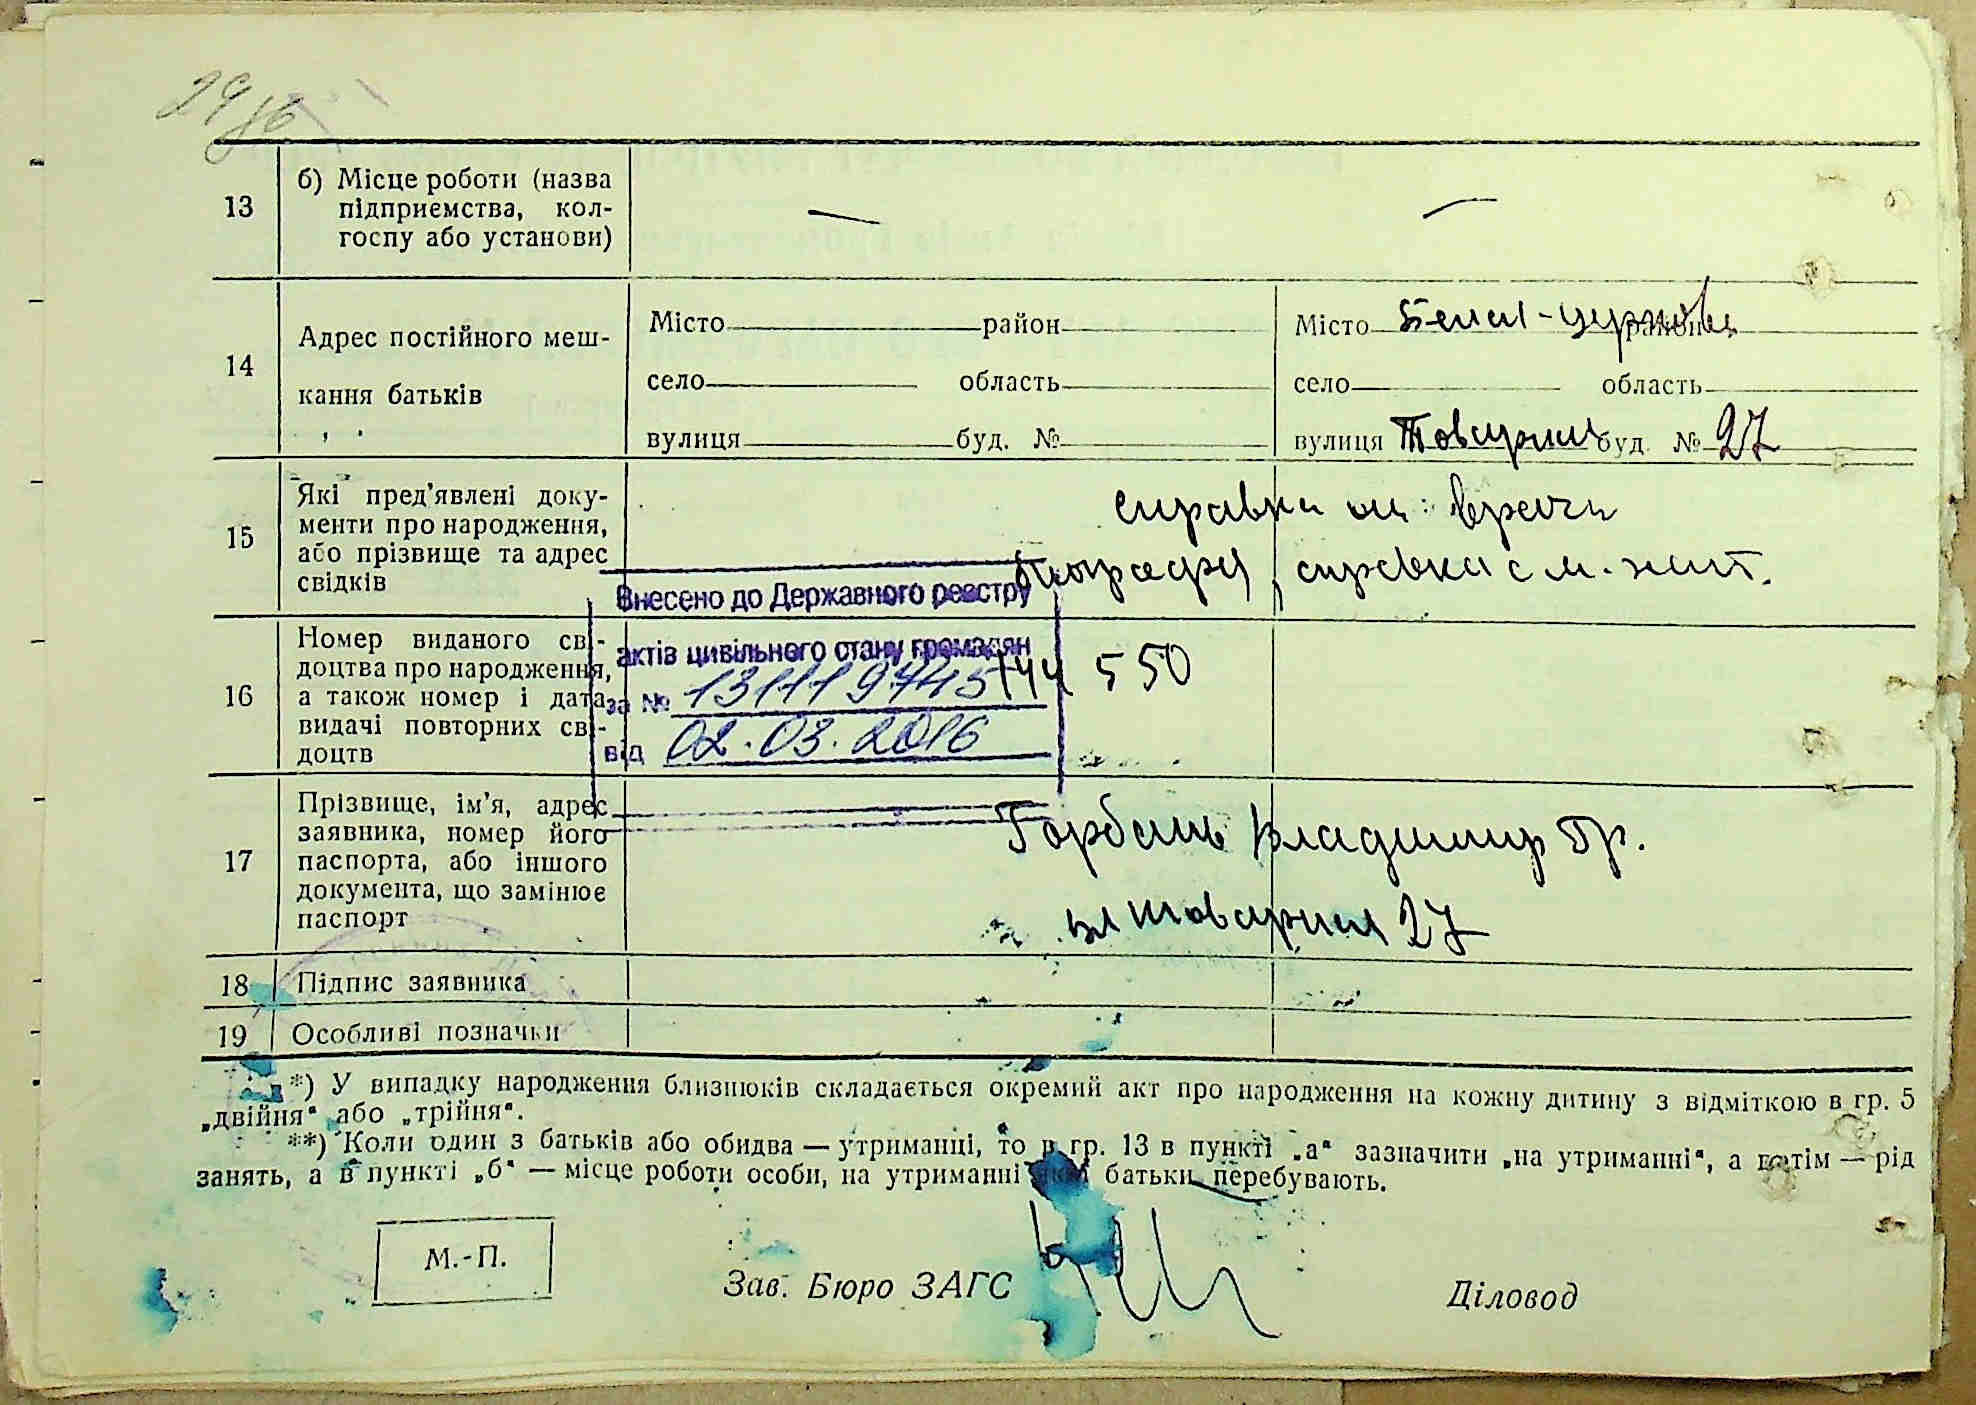 29/б
13
б) Місце роботи (назва
підприємства, кол-
госпу або установи)
—
—
14
Адрес постійного меш-
кання батьків
Місто район
село область
вулиця буд. №
Місто Белая-церковь район
село область
вулиця Товарная буд. № 27
15
Які пред'явлені доку-
менти про народження,
або прізвище та адрес
свідків
справка от врача
справка с м. жит.
Внесено до Державного реєстру
актів цивільного стану громадян
за № 1311197445
від 02.03.2016
16
Номер виданого сві-
доцтва про народження,
а також номер і дата
видачі повторних сві-
доцтв
550
17
Прізвище, ім'я, адрес
заявника, номер його
паспорта, або іншого
документа, що замінює
паспорт
Горбань Владимир Гр.
ул Товарная 27
18
Підпис заявника
19
Особливі позначки
*) У випадку народження близнюків складається окремий акт про народження на кожну дитину з відміткою в гр. 5
„двійня“ або „трійня“.
**) Коли один з батьків або обидва — утриманці, то в гр. 13 в пункті „а“ зазначити „на утриманні“, а потім — рід
занять, а в пункті „б“ — місце роботи особи, на утриманні якої батьки перебувають.
М.-П.
Зав. Бюро ЗАГС
Діловод